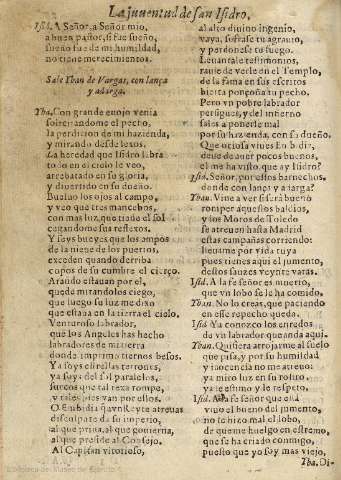 La juuentud de san Isidro,
Isid. A Señor, a Señor mio,
a buen pastor, si fue sueño,
sueño fue de mi humildad,
no tiene merecimientos.
Sale Iban de Vargas, con lança
y adarga.
Iba. Con grande enojo venia
solicitandome el pecho,
la perdicion de mi hazienda,
y mirando desde lexos.
La heredad que Isidro labra
todo en el cielo le veo,
arrebatado en su gloria,
y diuertido en su dueño.
Bueluo los ojos al campo,
y veo tres mancebos,
con mas luz que tiene el sol
cegandome sus reflexos.
Y seys bueyes que los ampos
de la nieue de los puertos,
exceden quando derriba
copos de su cumbre el cierço.
Arando estauan por el,
quedè mirandolos ciego,
que luego su luz me dixo
que estaua en la tierra el cielo.
Venturoso labrador,
que los Angeles has hecho
labradores de mi tierra
donde imprimo tiernos besos.
Ya soys estrellas terrones,
ya soys del sol paralelos,
surcos que tal rexa rompe,
y tales pies van por ellos.
O Embidia que al Rey te atreuas
disculpate da su imperio,
al que priua, al que gouierna,
al que preside al Consejo.
Al Capitan vitorioso,
al alto diuino ingenio,
vaya, sufrase tu agrauio,
y perdonese tu fuego.
Leuantale testimonios,
rauie de verle en el Templo,
de la fama en sus escritos
bicita ponçoña tu pecho.
Pero vn pobre labrador
persigues, y del infierno
sales a ponerle mal
por su hazienda, con su dueño.
Que ociosa viues Enbidia,
deue de auer pocos buenos,
el me ha visto, que ay Isidro?
Isid. Señor, por estos barnechos,
donde con lança y adarga?
Iban. Vine a ver si será bueno
romper aquestos baldios,
y los Moros de Toledo
se atreuen hasta Madrid
estas campañas corriendo:
lleuame por vida tuya
pues tienes aqui el jumento,
destos sauzes veynte varas.
Isid. A la fe señor es muerto,
que vn lobo se le ha comido.
Iban. No lo creas, que paciendo
en esse repecho queda.
Isid. Ya conozco los enredos
de vn labrador que anda aqui.
Iban. Quisiera arrojarme al suelo
que pisa, y por su humildad
y inocencia no me atreuo:
ya miro luz en su rostro
ya le estimo y le respeto.
Isid. A la fe señor que està
viuo el bueno del jumento,
no le hizo mal el lobo,
de que en estremo me huelgo,
que se ha criado conmigo,
puesto que yo soy mas viejo,
Iba. Di-
Biblioteca del Museo del Ejército